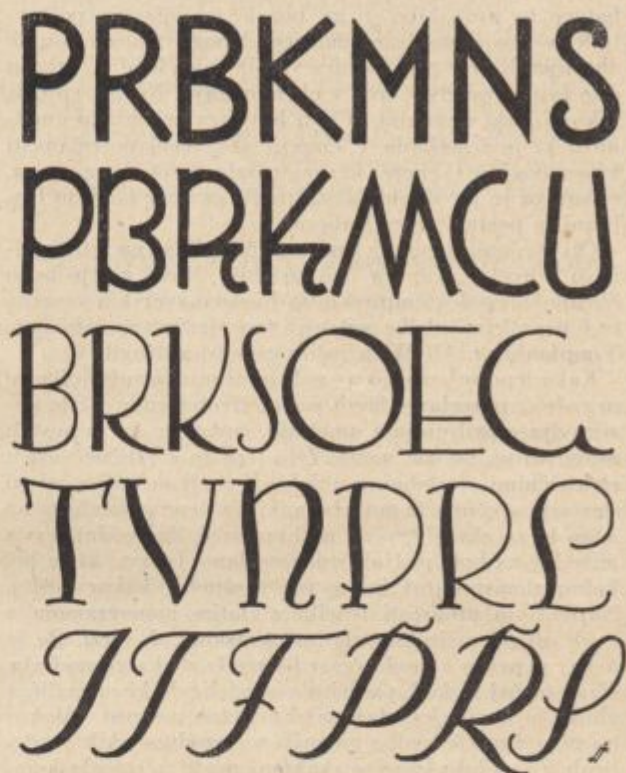 PRBKMNS
PBRKMCU
BRKSOEG
TVNPRL
ITFPRS